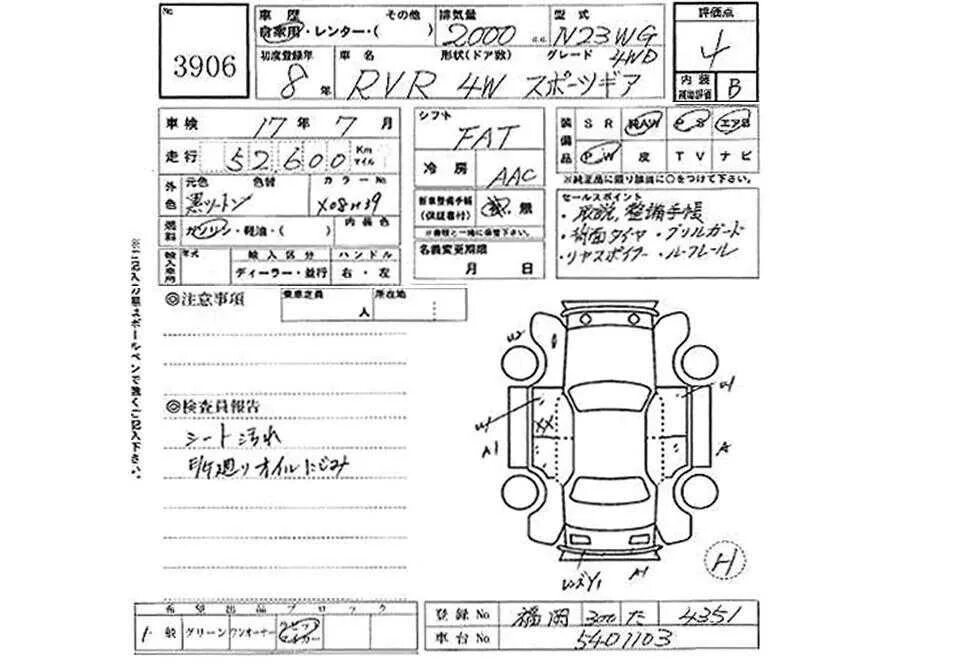 No 3906
車歴 自家用・レンター・( ) その他
排気量 2000 c.c.
型式 N23WG
初度登録年 8年
車名 RVR 4W スポーツギア
形状(ドア数) グレード 4WD
評価点 4
内装 補助評価 B
車検 17年7月
走行 52,600 Km マイル
外色 元色 色替 黒ツートン
カラーNo X08H39
燃料 ガソリン・軽油・( )
内装色
輸入車用 年式 輸入区分 ハンドル
ディーラー・並行 右・左
シフト FAT
冷房 AAC
新車整備手帳(保証書付) 有・無
※書類と一緒に保管下さい。
名義変更期限
月 日
装備品 SR 純AW PS エアB
PW 皮 TV ナビ
※純正品に限り該当に○をつけて下さい。
セールスポイント
・取説、整備手帳
・背面タイヤ・グリルガード
・リヤスポイラー・ルーフレール
◎注意事項
乗車定員 人 所在地
◎検査員報告
シート汚れ
E/G廻りオイルにじみ
※に記入の際はボールペンで強くご記入下さい。
U2
U1
U1
A1
A
レンズY1
A1
XX
H
希望出品ブロック
一般 グリーン ワンオーナー
登録No 福岡 300 た 4351
車台No 5401103